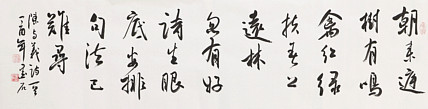 朝来庭
樹有鳴
禽红绿
扶春上
遠林
忽有好
詩生眼
底安排
句法已
難尋
陳与義詩一首
丁酉年